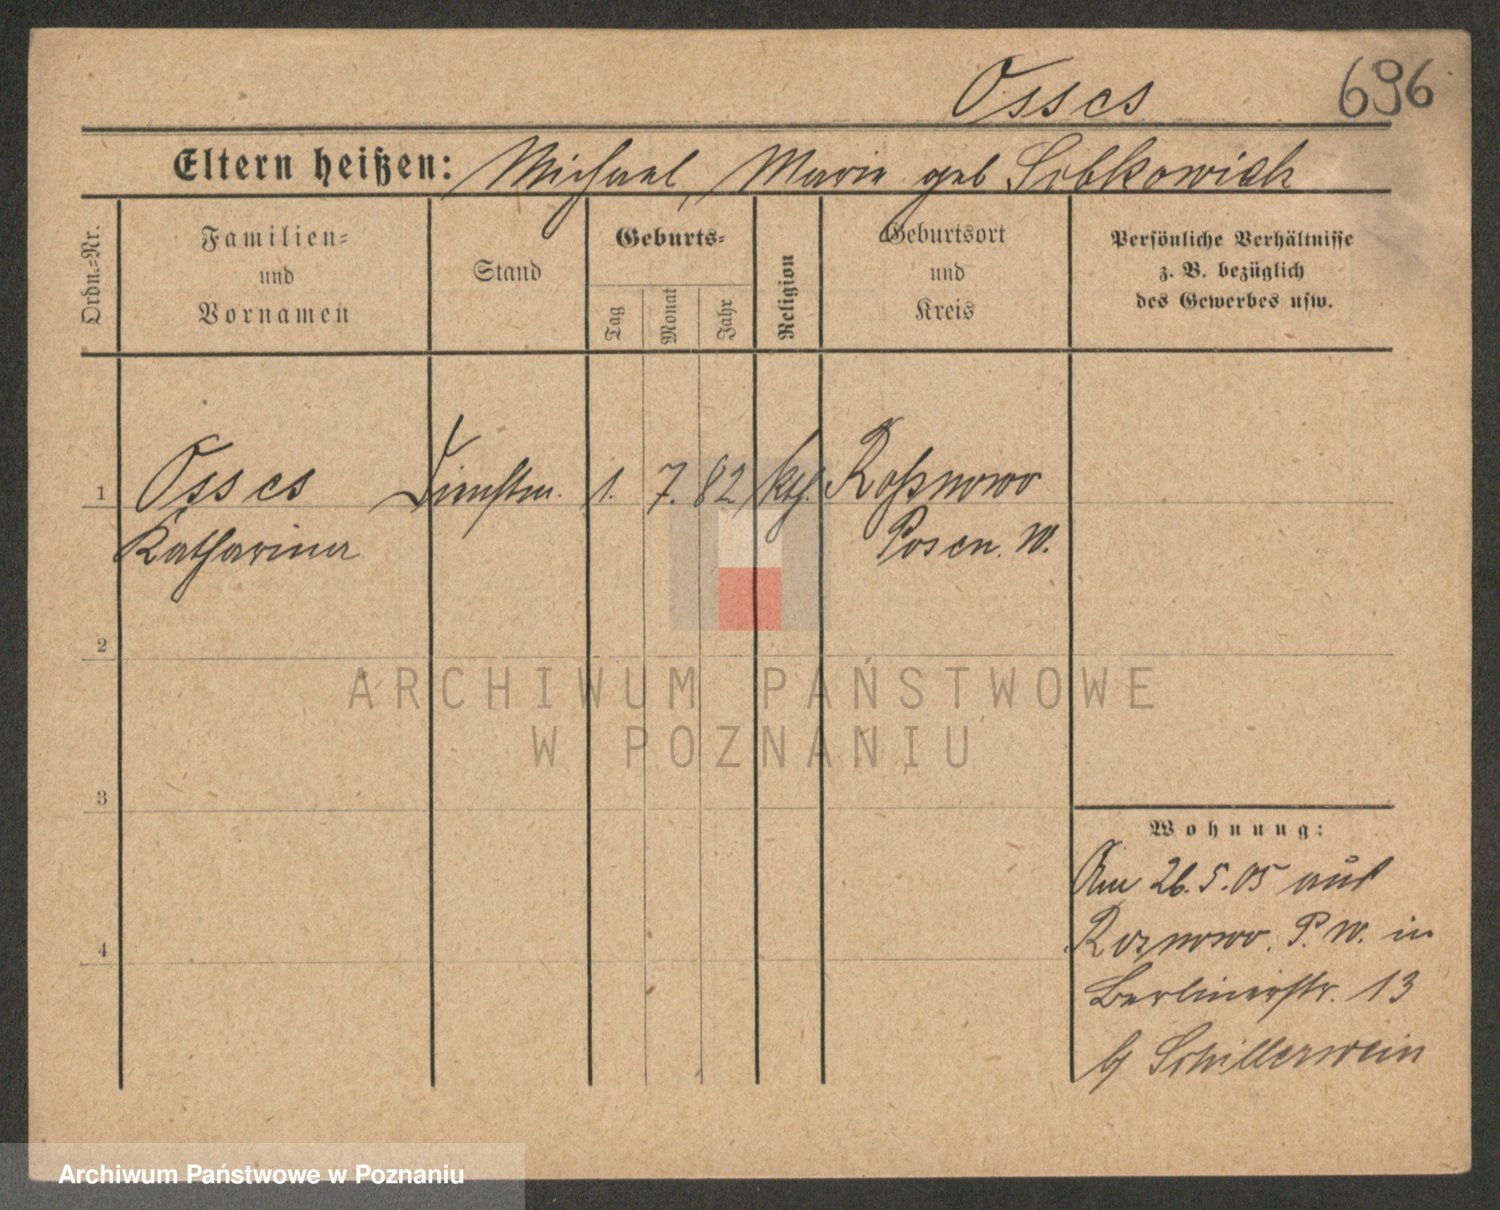 Osses 696
Eltern heißen: Michael, Marie geb Sobkowiak
Ordn.-Nr.
Familien-
und
Vornamen
Stand
Geburts-
Tag
Monat
Jahr
Religion
Geburtsort
und
Kreis
Persönliche Verhältnisse
z. B. bezüglich
des Gewerbes usw.
1 Osses Dienstm. 1. 7. 82 kth. Roßnowo
Katharina Posen. W.
2
3
4
Wohnung:
Am 26.5.05 aus
Rosnowo. P. W. in
Berlinerstr. 13
b/ Schillerwein
ARCHIWUM PAŃSTWOWE
W POZNANIU
Archiwum Państwowe w Poznaniu